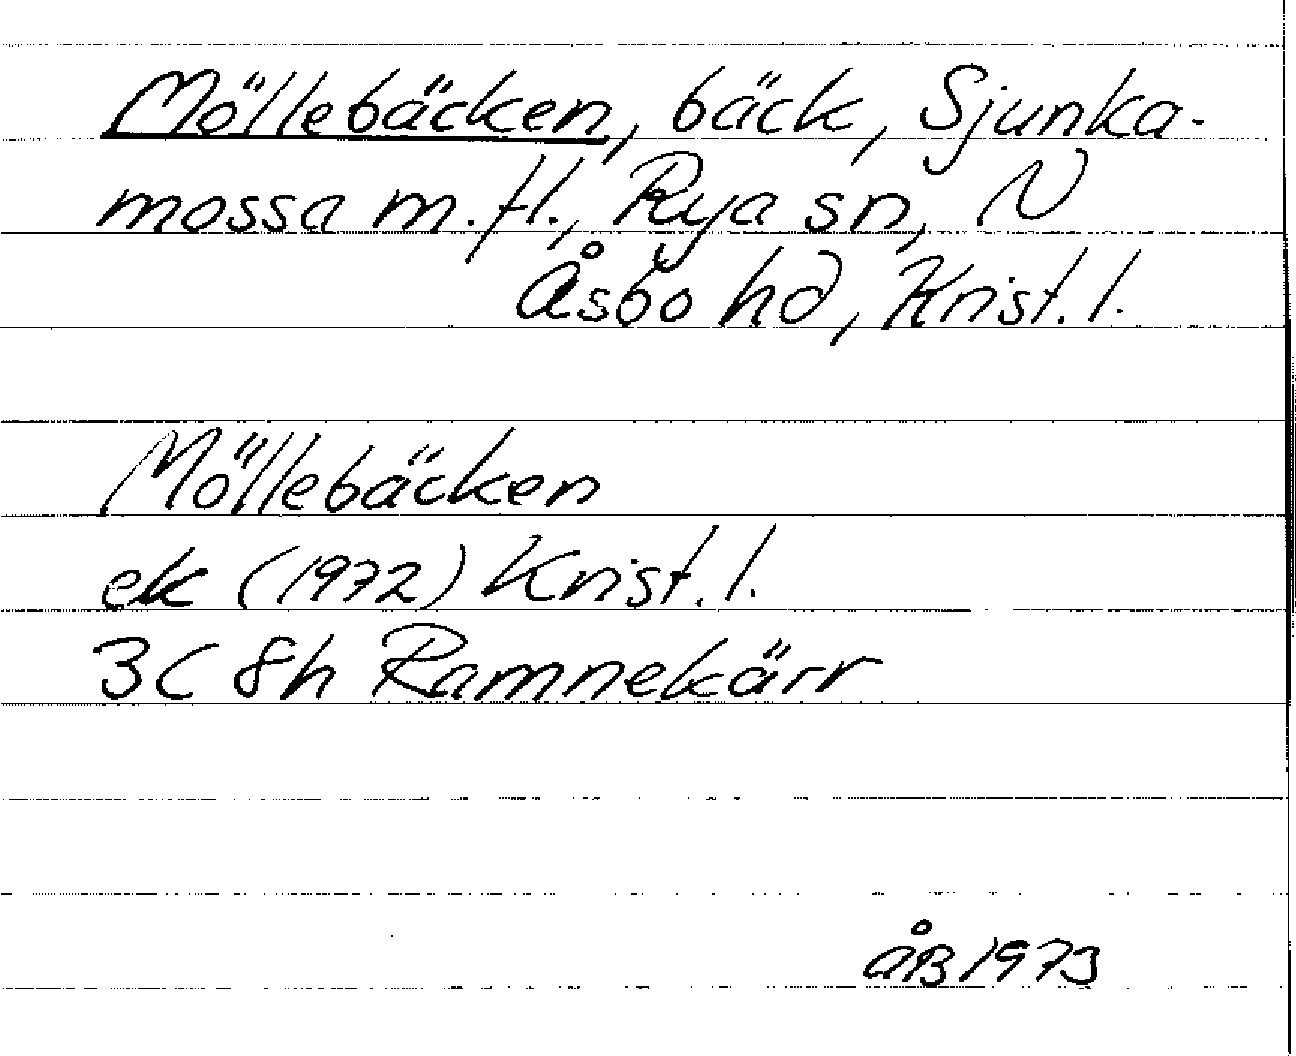 Möllebäcken, bäck, Sjunka-
mossa m.fl., Rya sn, N
Åsbo hd, Krist.l.
Möllebäcken
ek (1972) Krist.l.
3C 8h Ramnekärr
åB 1973